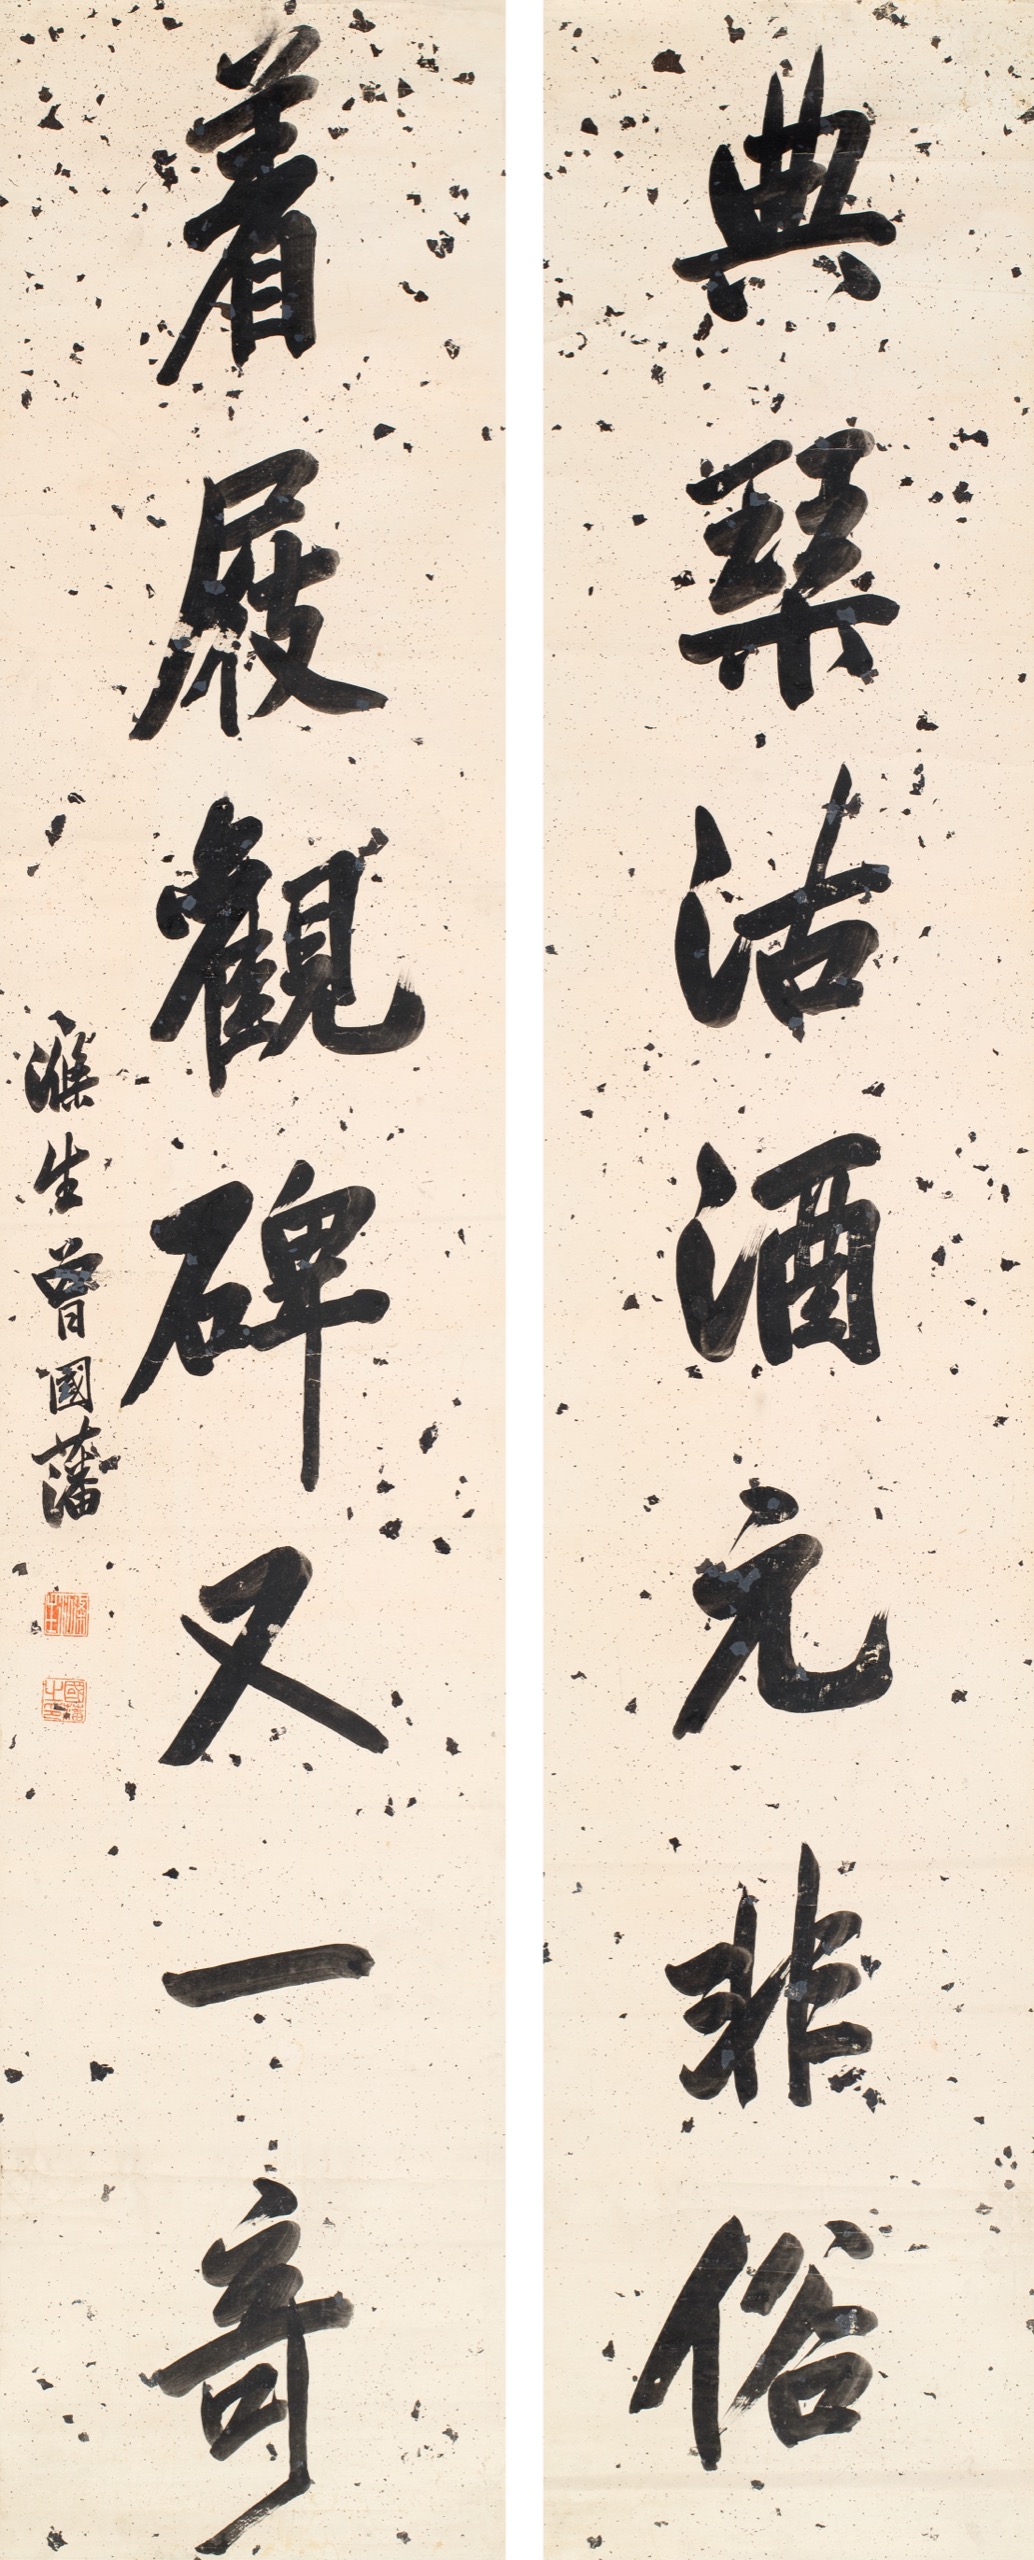 典琴沽酒元非俗
着屐觀碑又一奇
滌生曾國藩
國藩之印